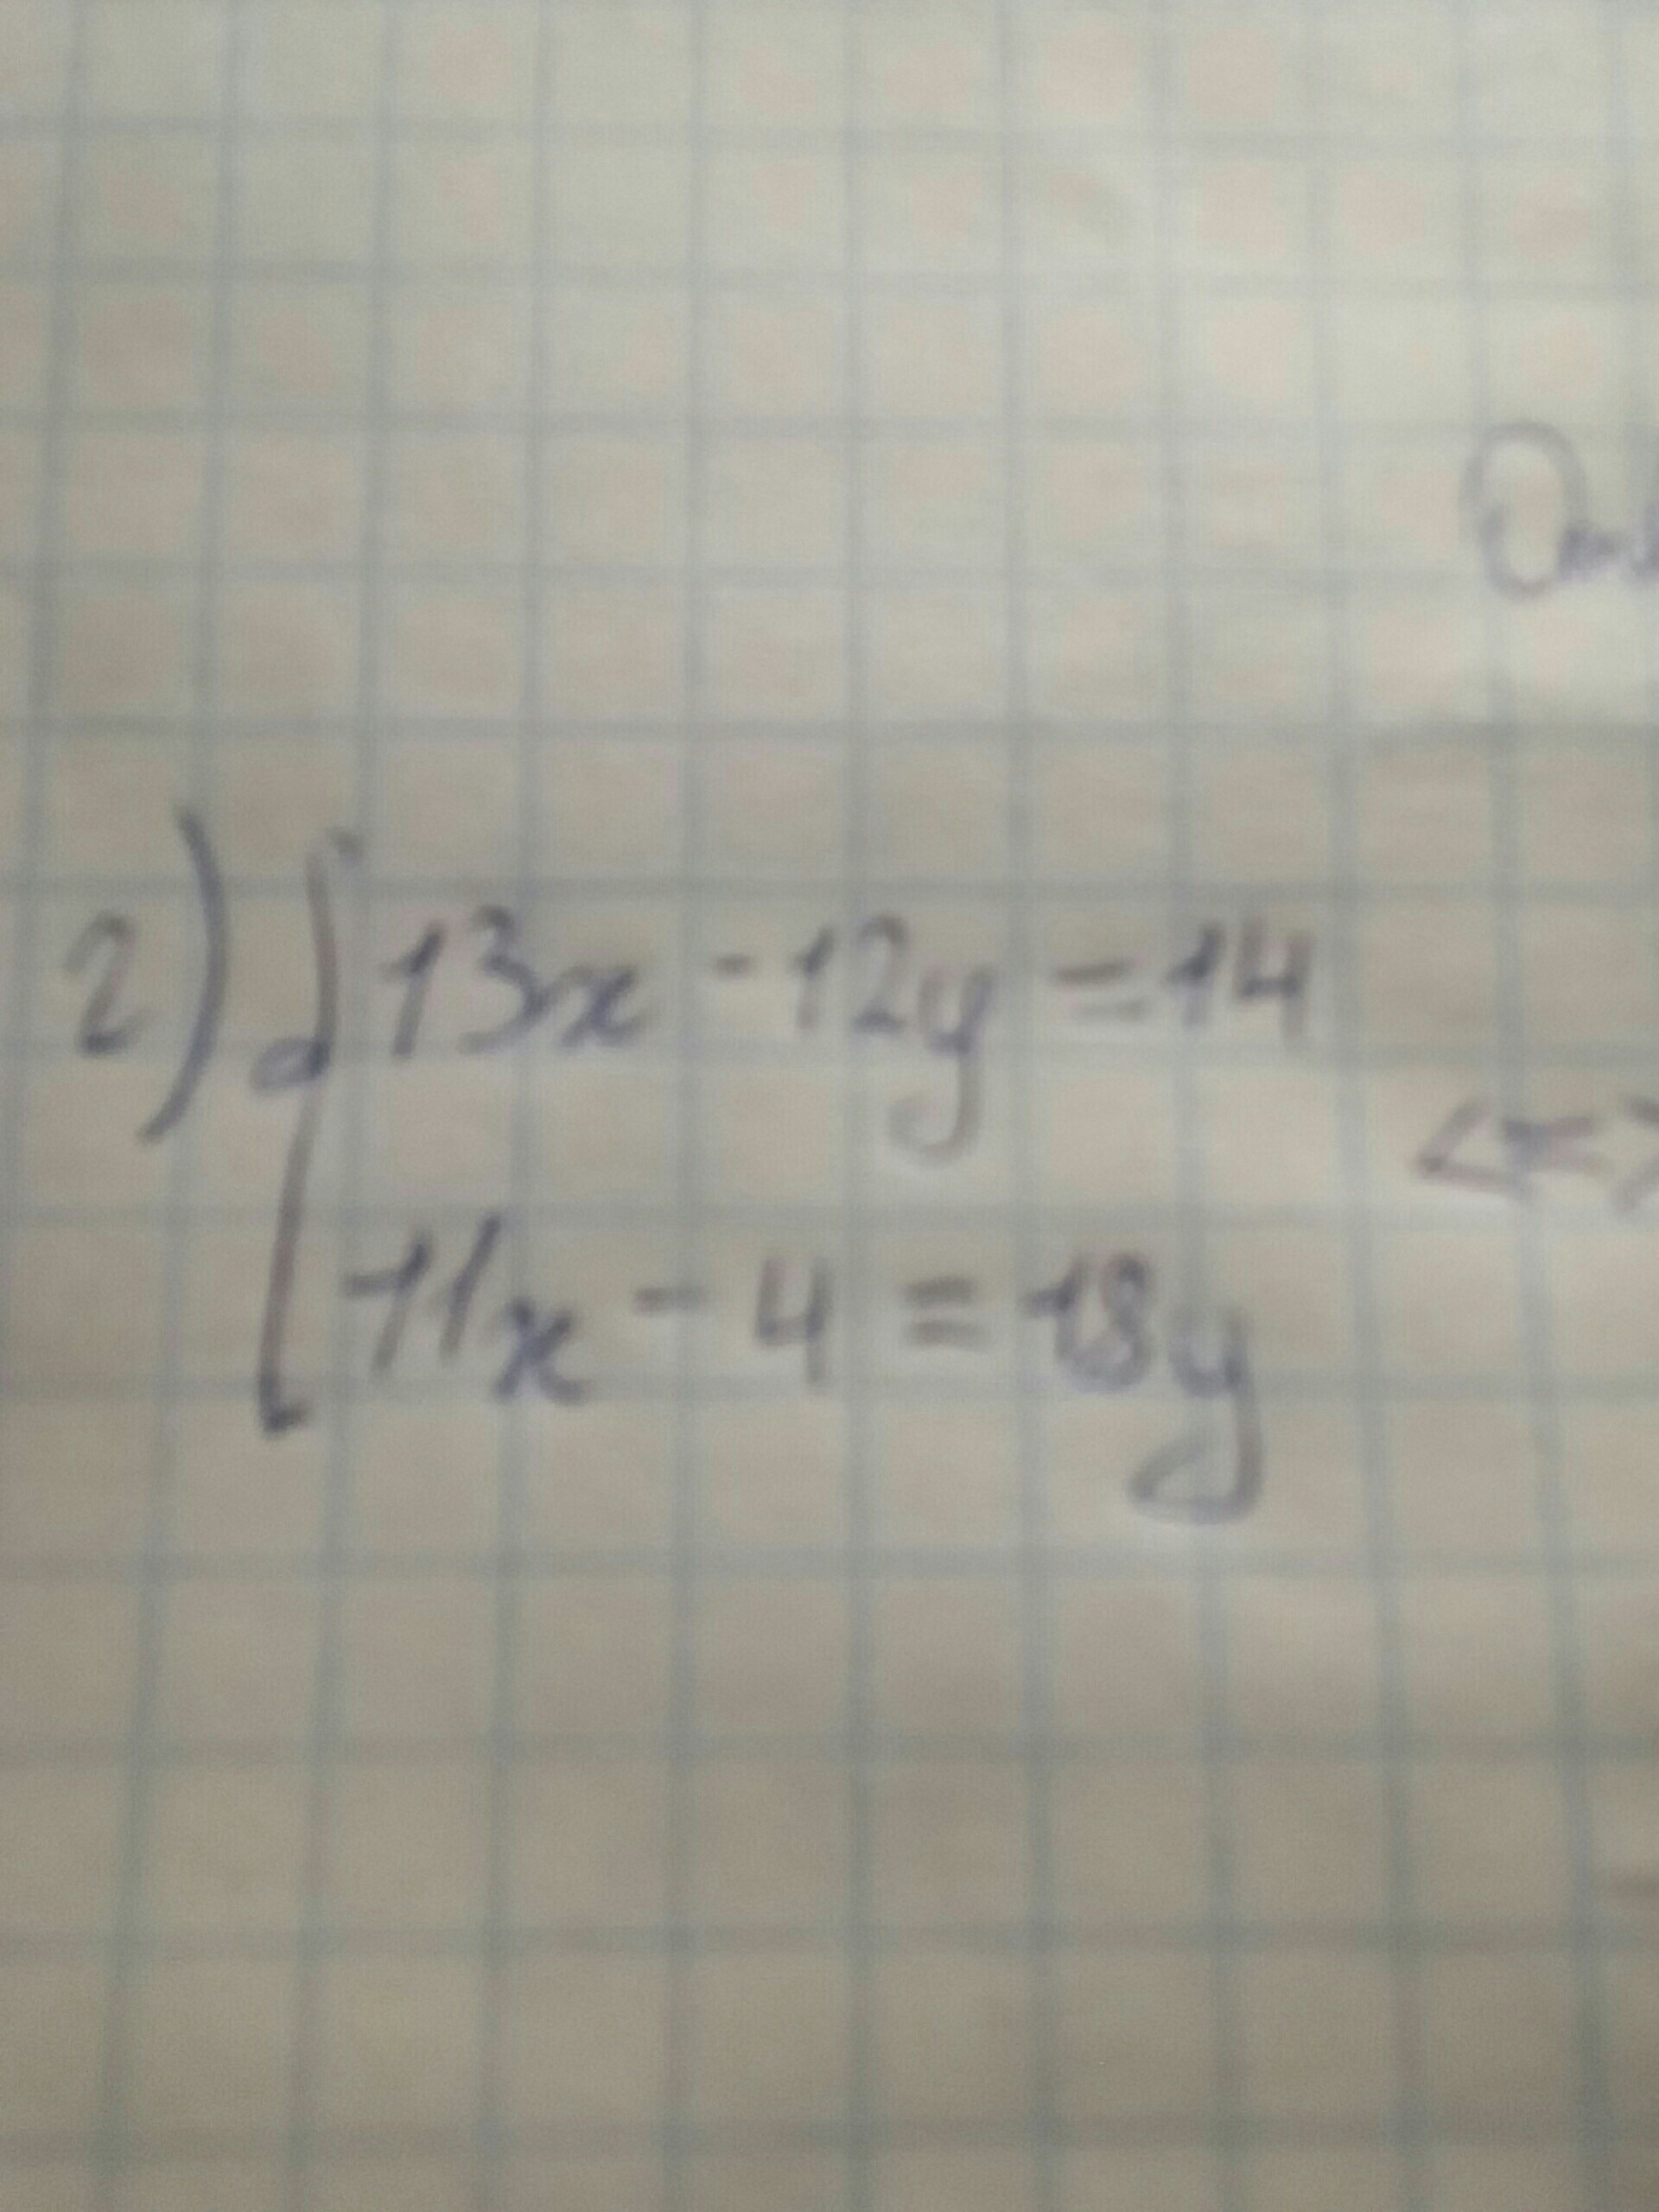 2) { 13x - 12y = 14
<=>
11x - 4 = 18y